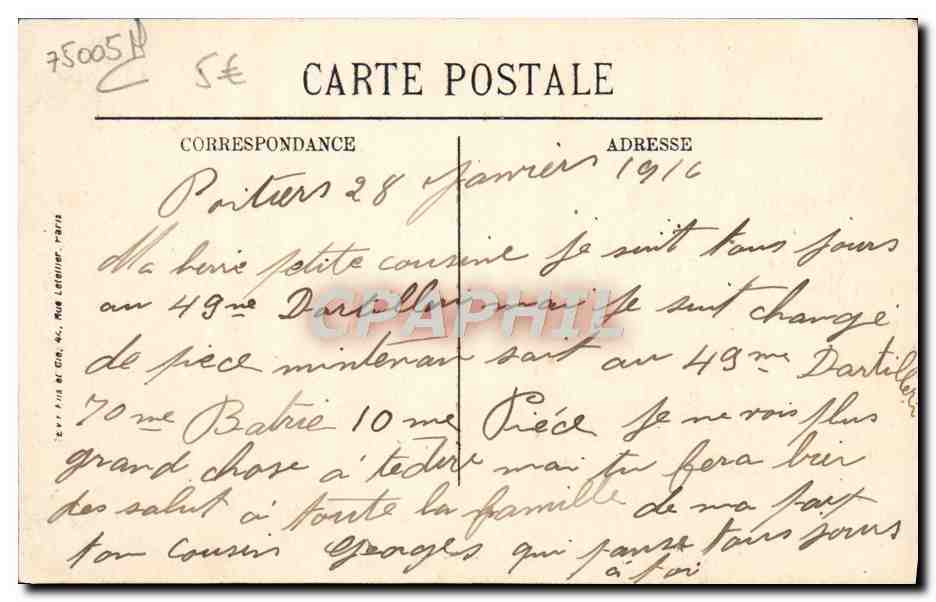 75005
5€
CARTE POSTALE
CORRESPONDANCE
ADRESSE
Poitiers 28 Janviers 1916
Ma berre petite cousine Je suit tous jours
au 49me Dartillerie mai Je suit changé
de pièce mintenan sait au 49me Dartillerie
70me Batrie 10me Piéce Je ne vois plus
grand chose à te dire mai tu fera bien
des salut à toute la famille de ma fait
ton cousin Georges qui panse tous jours
à toi
Fils et Cie, 44, Rue Letellier, Paris
CPAPHIL